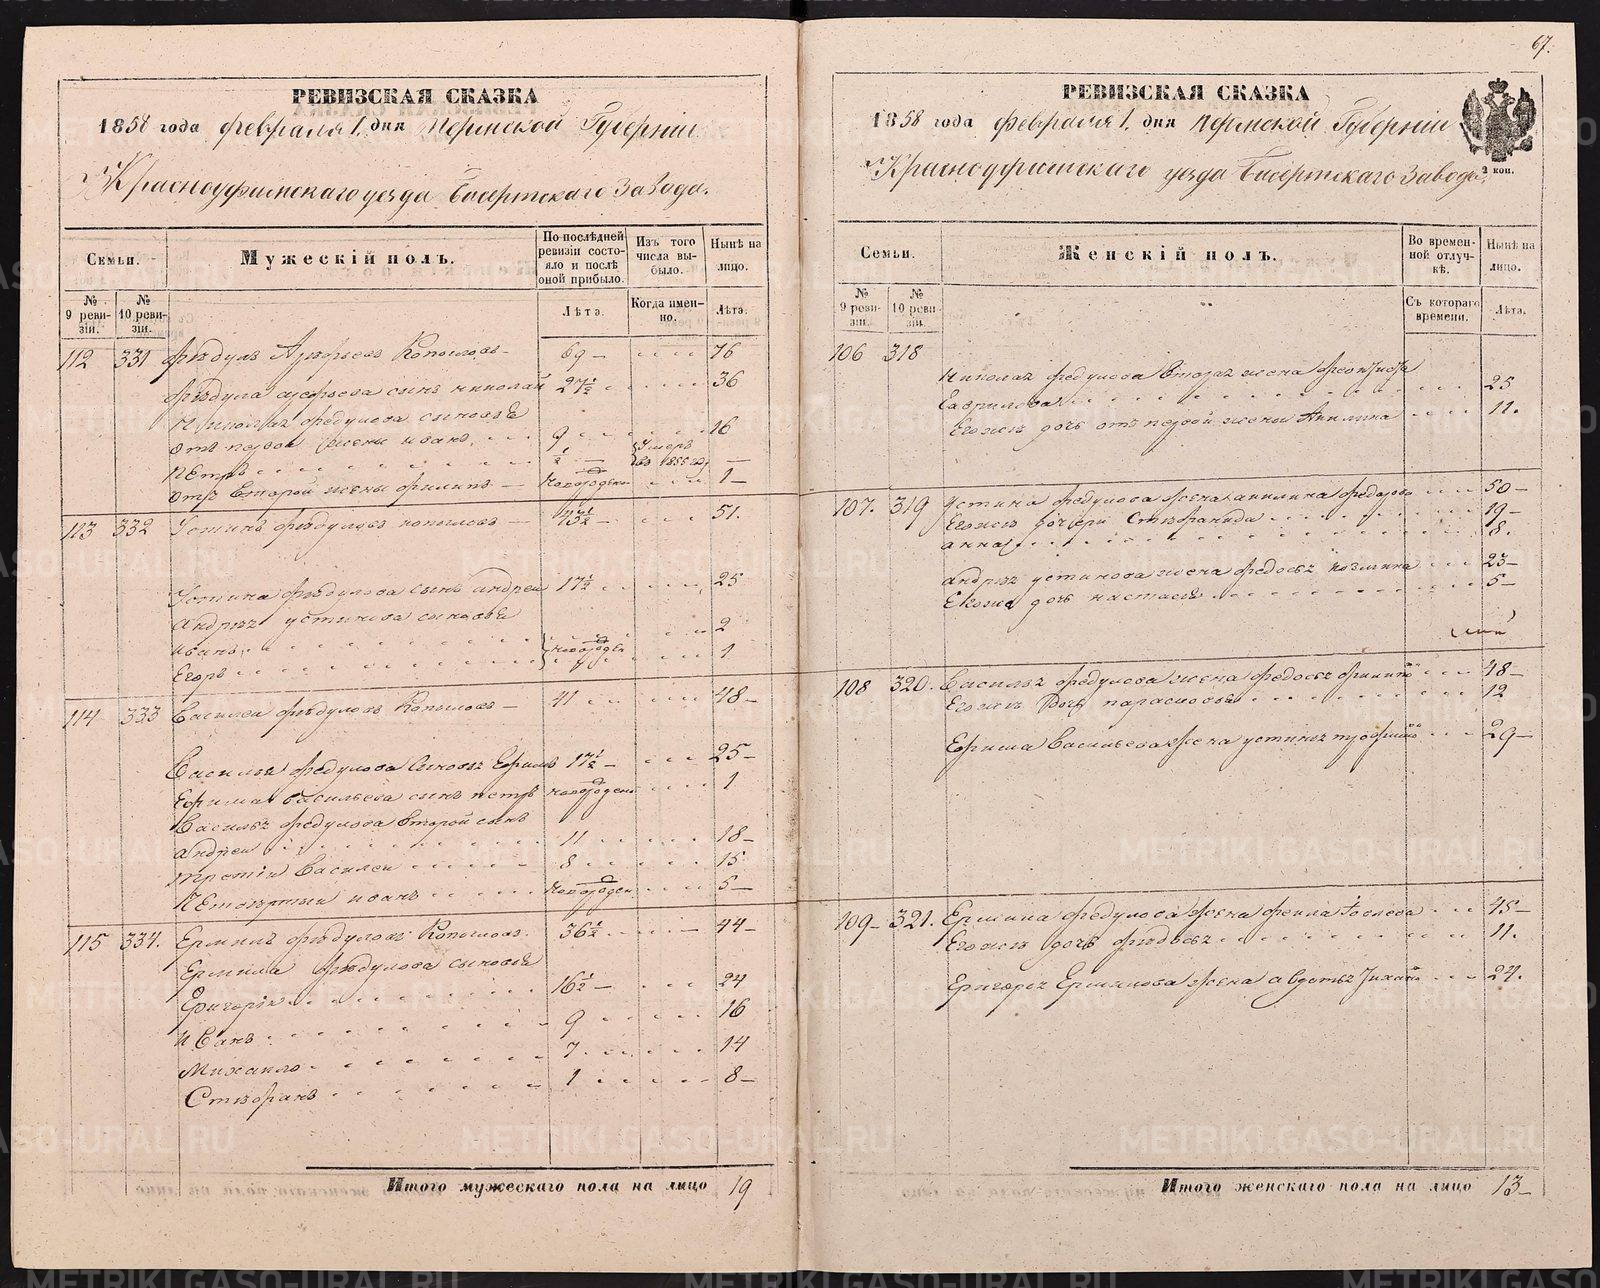 67.
РЕВИЗСКАЯ СКАЗКА
1858 года февраля 1. дня Пермской Губерніи
Красноуфимскаго уезда Бисертскаго Завода.
Семьи.
Мужескій полъ.
По послѣдней ревизіи состояло и послѣ оной прибыло.
Изъ того числа выбыло.
Нынѣ на лицо.
№ 9 ревизіи.
№ 10 ревизіи.
Лѣта.
Когда именно.
Лѣта.
112 331 Копыловъ 69 — 76
сынъ николай 27½ 36
Николая федулова сыновья
отъ первой жены иванъ 9 16
Петръ ½ Умеръ въ 1855 году —
отъ второй жены филипъ — новорожденъ 1 —
113 332 Устинъ федуловъ копыловъ — 43½ — 51.
Устина федулова сынъ андрей 17½ 25
андрея устинова сыновья
иванъ 2
новорожден
Егоръ 1
114 333 Василей федуловъ Копыловъ — 41 48 —
Василья федулова сыновья Ефимъ 17½ — 25 —
Ефима васильева сынъ петръ новорожденъ 1
Василья федулова второй сынъ
андрей 11 18 —
третій Василей 8 15
Четвертый иванъ новорожден 5 —
115 334. Ермилъ федуловъ Копыловъ. 36½ 44 —
Ермила федулова сыновья
Григорій 16½ — 24
иванъ 9 16
Михайло 7. 14
Стефанъ 1 8 —
Итого мужескаго пола на лицо 19
РЕВИЗСКАЯ СКАЗКА
1858 года февраля 1. дня Пермской Губерніи
Красноуфимскаго уезда Бисертскаго Завода.
2 коп.
Семьи.
Женскій полъ.
Во временной отлучкѣ.
Нынѣ на лицо.
№ 9 ревизіи.
№ 10 ревизіи.
Съ котораго времени.
Лѣта.
106 318
Николая федулова вторая жена
Гаврилова 25
Его жъ дочь отъ первой жены Акилина 11.
107. 319 Устина федулова жена акилина федорова 50 —
Его жъ дочери Стефанида 19 —
анна 8.
андрея устинова жена федосья 23 —
Его жъ дочь настасья 5 —
108 320. Василья федулова жена федосья 48 —
Его жъ дочь парасковья 12
Ефима Васильева жена устинья 29 —
109 — 321. Ермила федулова жена 45 —
Его жъ дочь 11.
Григорья Ермилова жена авдотья 24.
Итого женскаго пола на лицо 13 —
METRIKI.GASO-URAL.RU